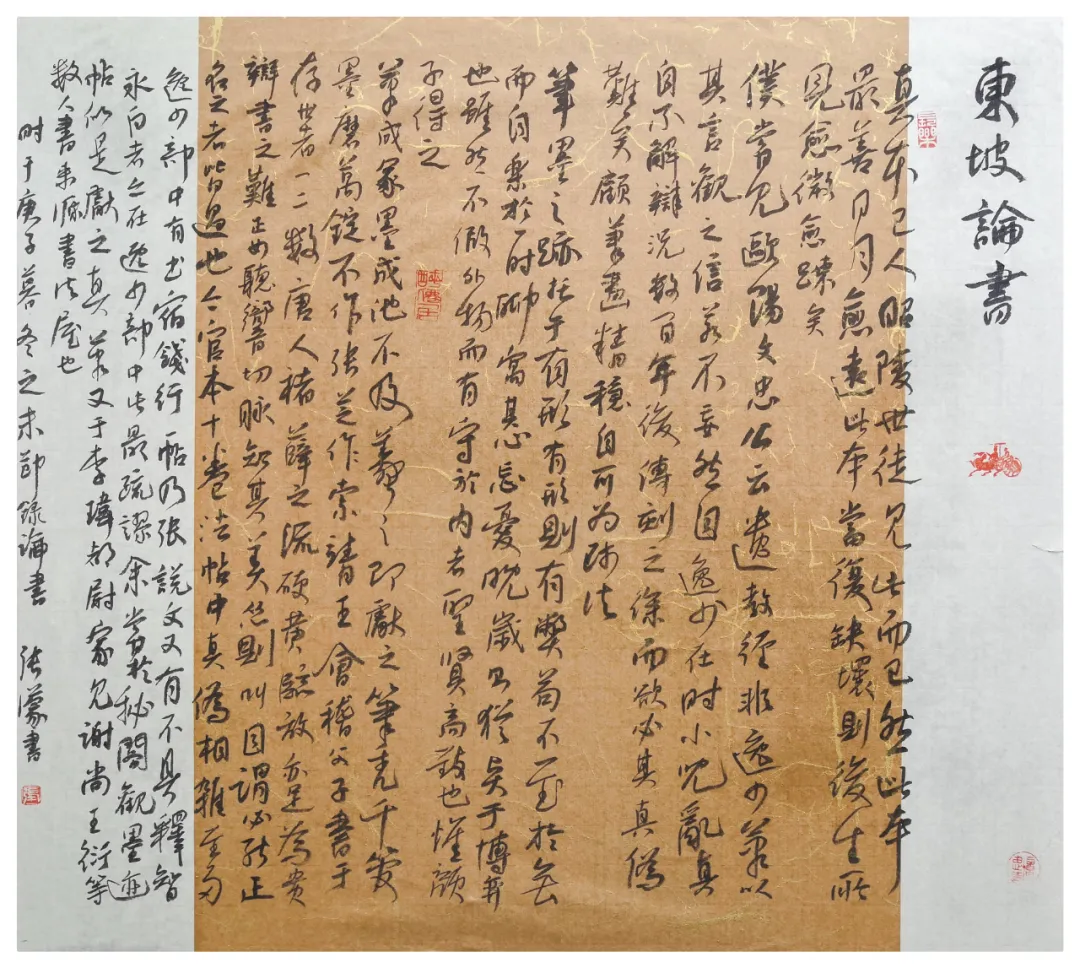 東坡論書
真本已入昭陵世徒见此而已然此本
最善日月愈遠此本當復缺壞則後生所
見愈微愈疎矣
僕嘗见歐陽文忠公云遺教經非逸少筆以
其言觀之信若不妄然自逸少在时小兒亂真
自不解辯况数百年後傳刻之餘而欲必其真僞
難矣顧筆畫精穩自可为師法
筆墨之跡托于有形有形則有獘苟不至於無
而自樂於一时聊寓其心忘憂晚歲則猶贤于博弈
也雖然不假外物而有守於内者聖贤高致也惟顔
子得之
笔成冢墨成池不及羲之即獻之筆禿千管
墨磨萬錠不作张芝作索靖王會稽父子書于
存世者一二数唐人褚薛之流硬黄臨放亦足為贵
辯書之難正如聽響切脉知其美恶則可自謂必能正
名之者皆過也今官本十卷法帖中真僞相雜至多
逸少部中有出宿餞行一帖乃张説文又有不具釋智
永白者亦在逸少部中此最疏謬余嘗於秘閣觀墨迹
帖似是獻之真筆又于李瑋都尉家见謝尚王衍等
数人書
时于庚子暮冬之末節録論書 张濛書